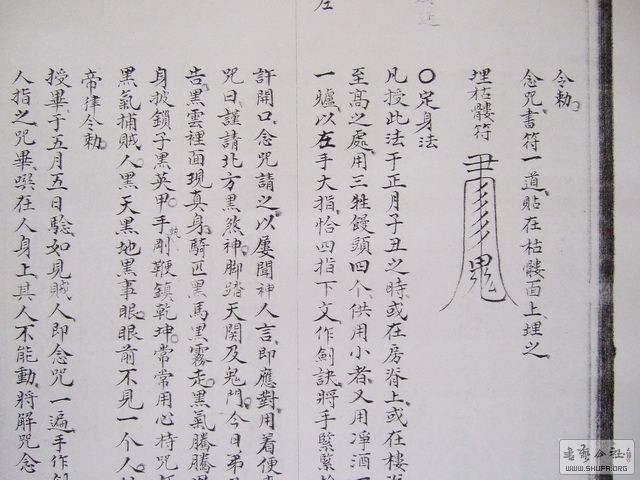 令勅
念咒書符一道貼在枯髏面上埋之
埋枯髏符
鬼
〇定身法
凡授此法于正月子丑之時或在房脊上或在樓
至髙之處用三牲饅頭四个供用小者又用渾酒
一爐以左手大指恰四指下文作劍訣將手緊
許開口念咒請之以屢聞神人言即應對用着便
咒曰謹請北方黑煞神脚踏天関及鬼門今日弟
告黑雲裡面現真身騎匹黑馬黑霧走黑氣騰騰
身披鎖子黑英甲手執剛鞭鎮乾坤常常用心持咒
黑氣捕賊人黑天黑地黑事眼眼前不見一个人
帝律令勅
授畢于五月五日驗如見賊人即念咒一遍手作
人指之咒畢噀在人身上其人不能動將解咒念
書藝公社
WWW.SHUFA.ORG